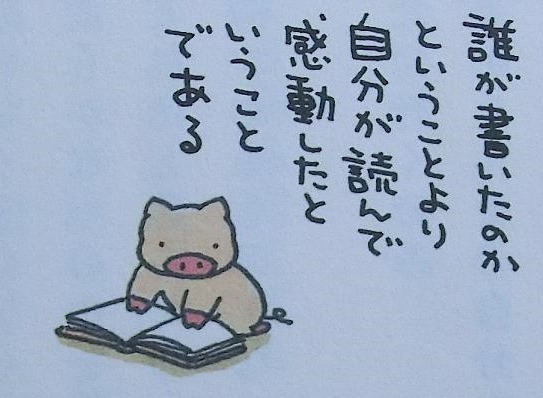 誰が書いたのか
ということより
自分が読んで
感動したと
いうこと
である